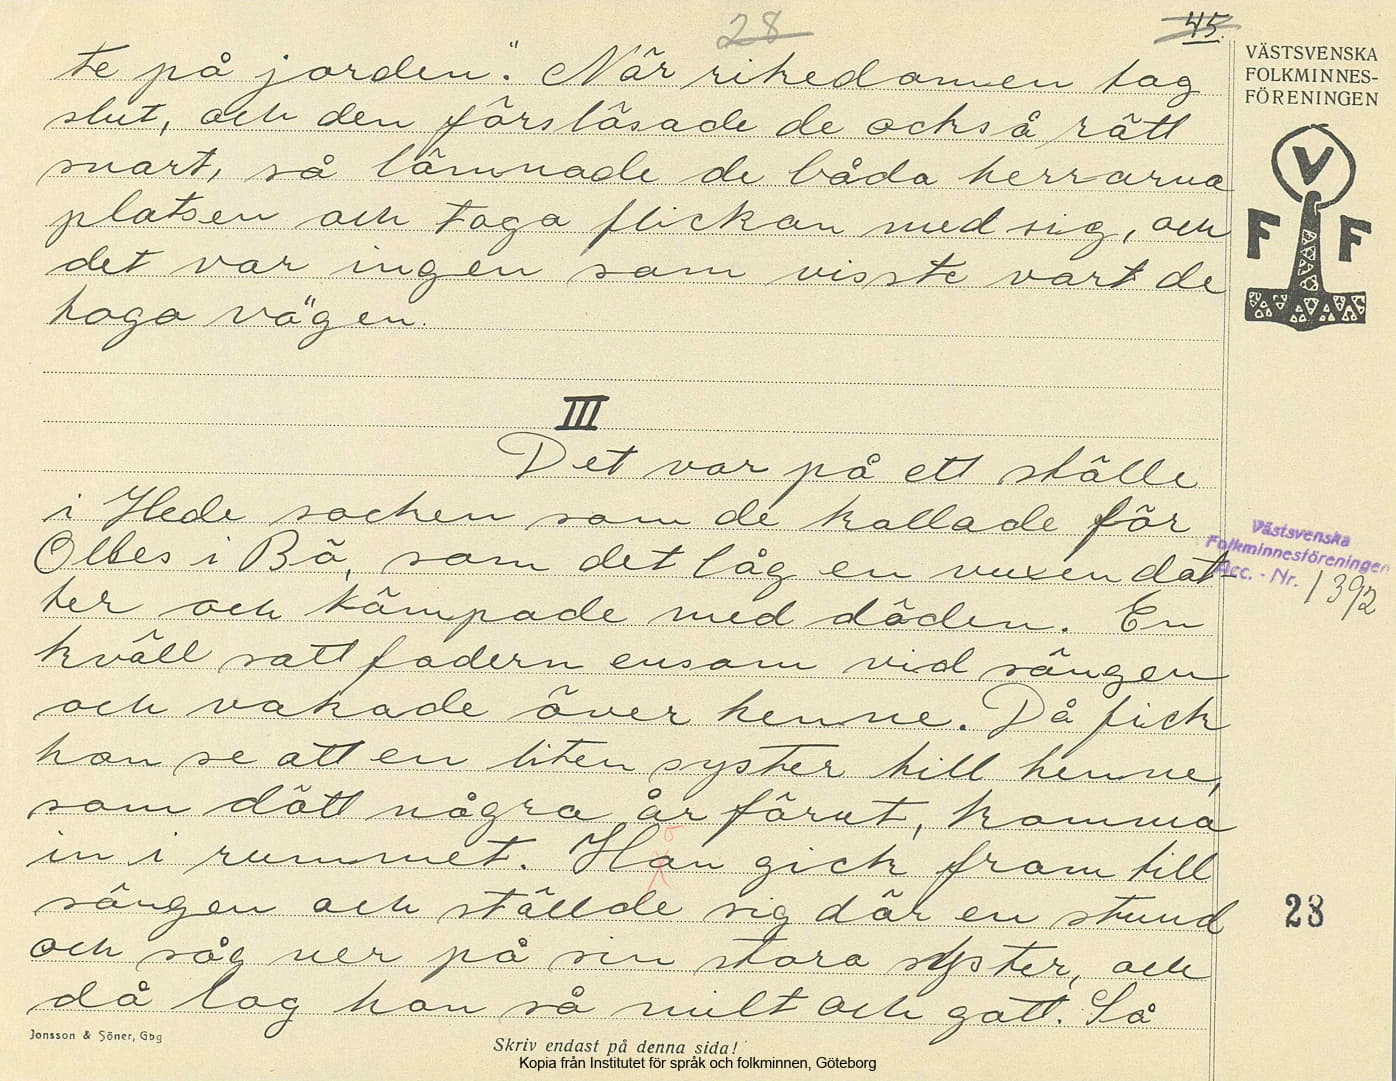 28
45.
VÄSTSVENSKA
FOLKMINNES-
FÖRENINGEN
V
F F
te på jorden." När rikedomen tog
slut, och den förslösade de också rätt
snart, så lämnade de båda herrarna
platsen och toga flickan med sig, och
det var ingen som visste vart de
toga vägen.
III
Det var på ett ställe
i Hede socken som de kallade för
Olles i Bö, som det låg en vuxen dot-
ter och kämpade med döden. En
kväll satt fadern ensam vid sängen
och vakade över henne. Då fick
han se att en liten syster till henne,
som dött några år förut, komma
in i rummet. Hon gick fram till
sängen och ställde sig där en stund
och såg ner på sin stora syster, och
då log hon så milt och gott. Så
Västsvenska
Folkminnesföreningen
Acc. - Nr. 1392
28
Jonsson & Söner, Gbg
Skriv endast på denna sida!
Kopia från Institutet för språk och folkminnen, Göteborg